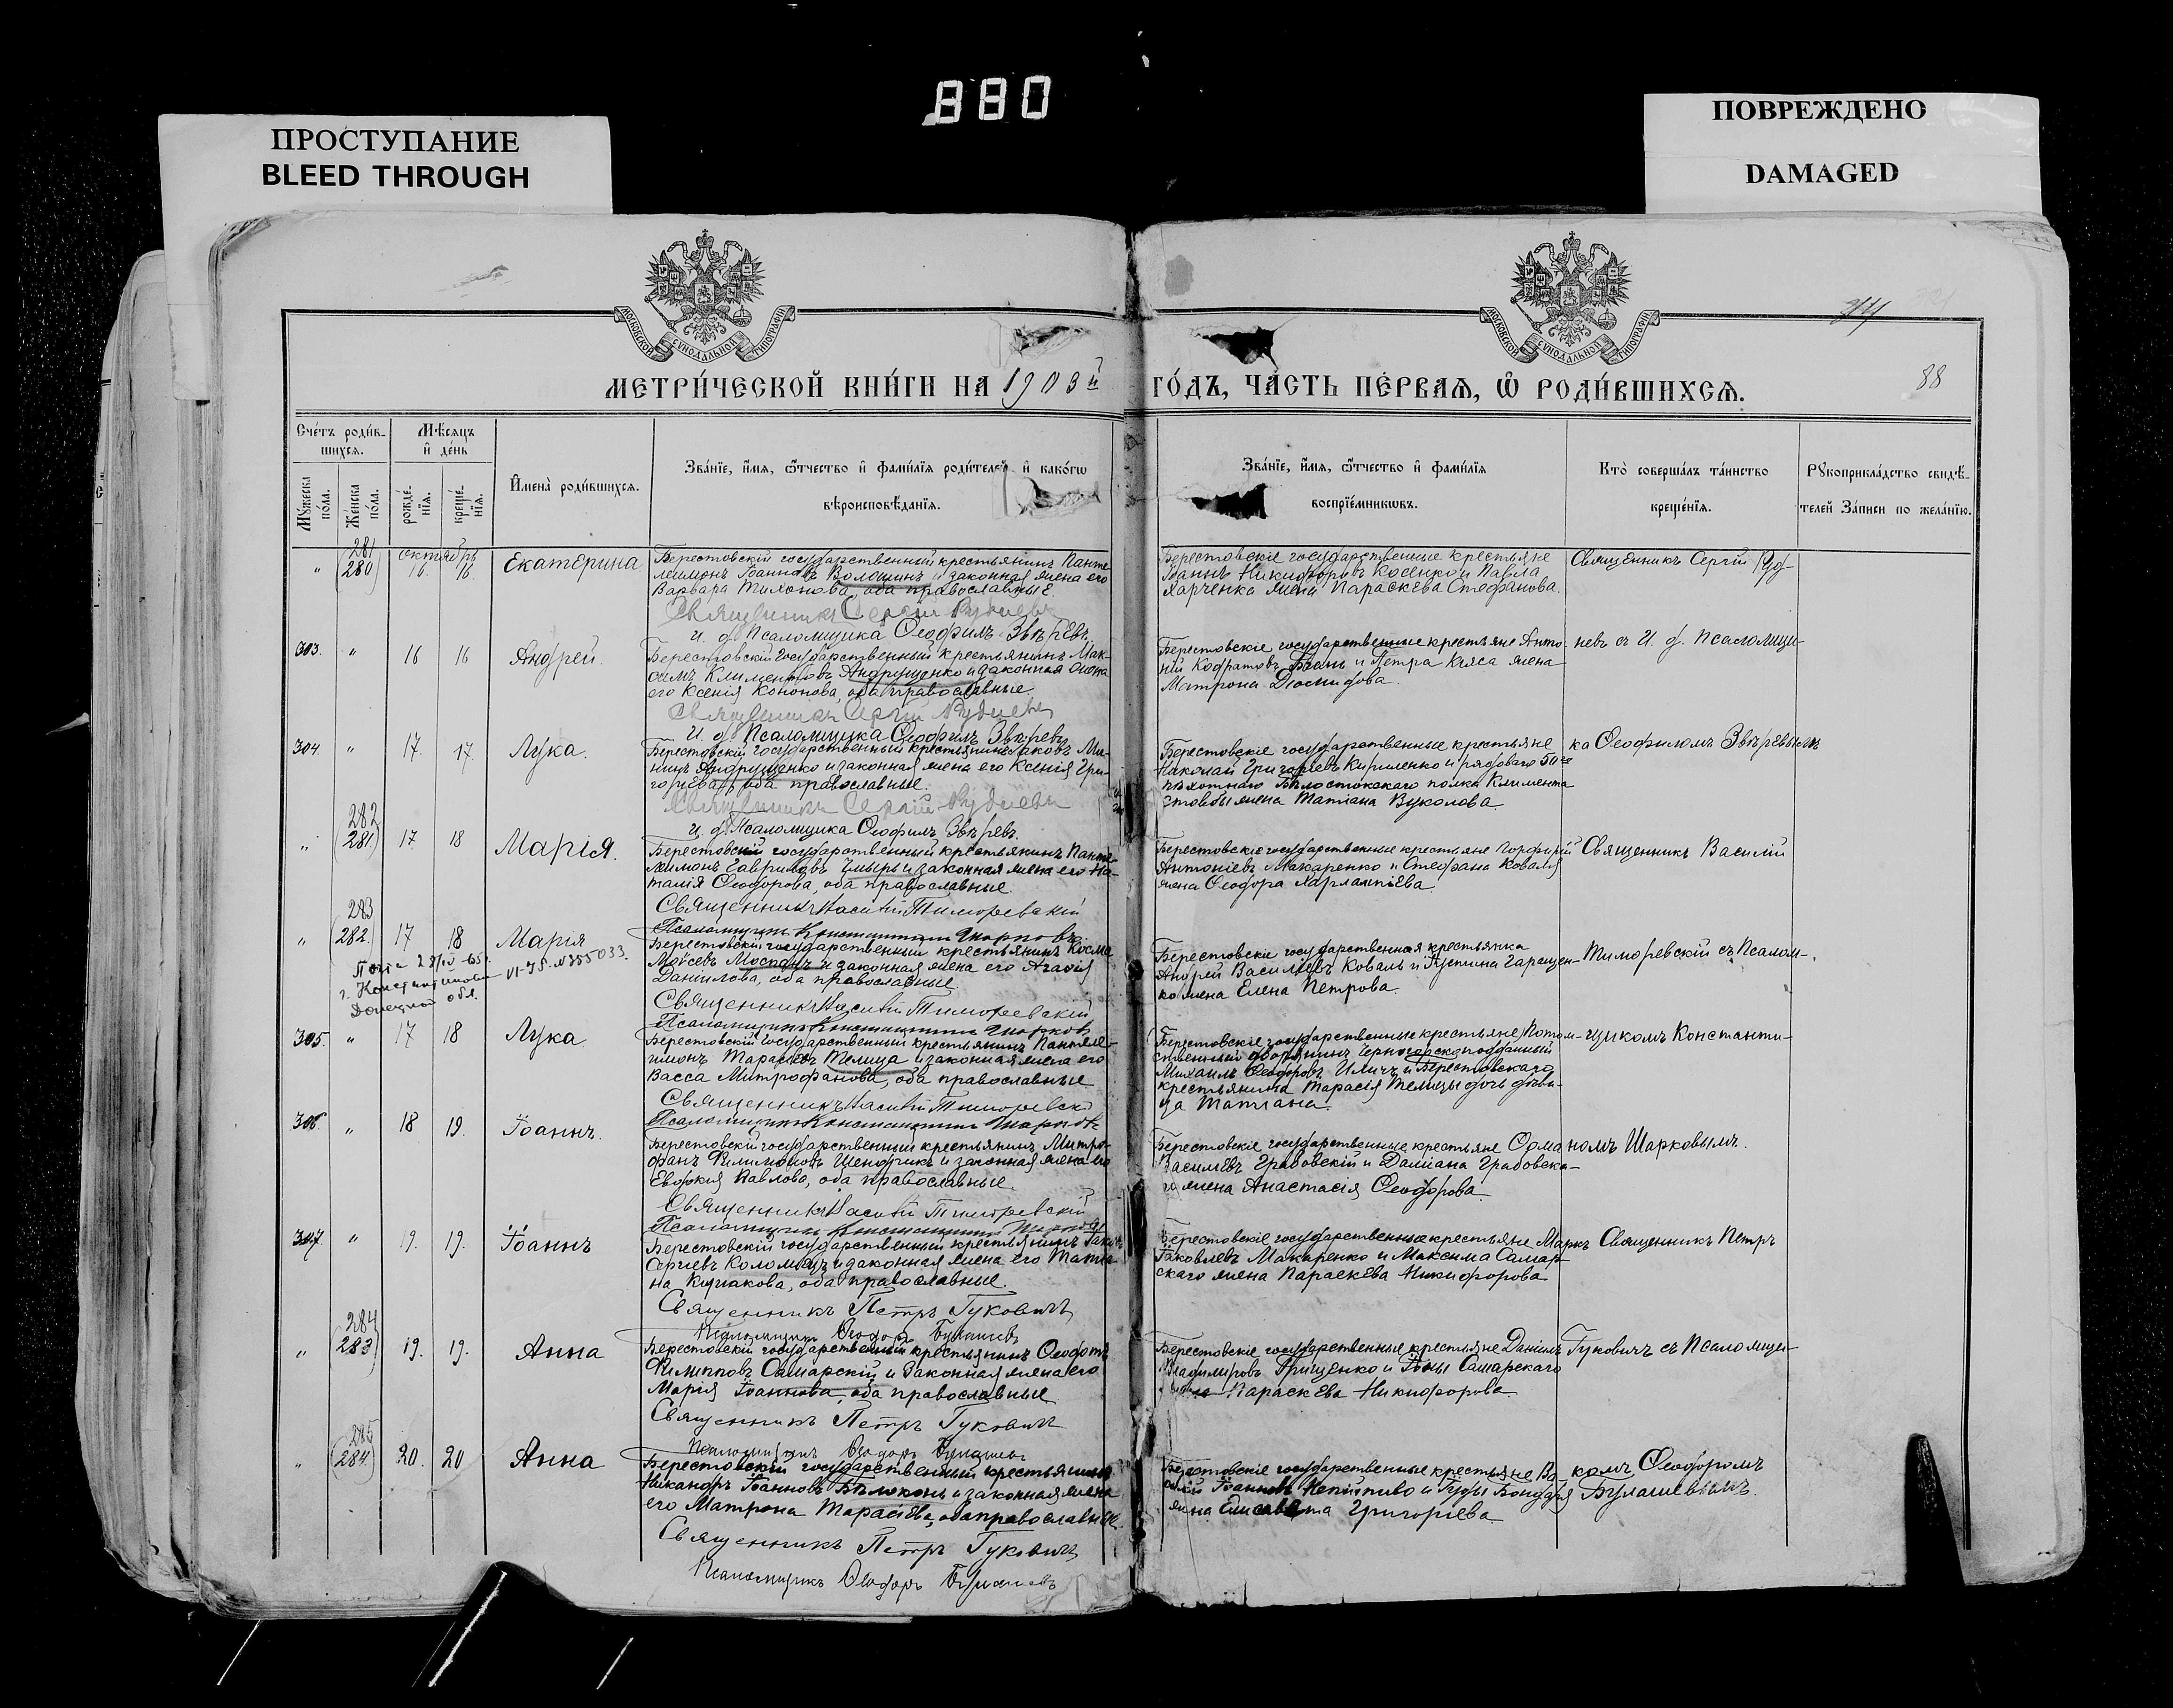 880
ПРОСТУПАНИЕ
BLEED THROUGH
ПОВРЕЖДЕНО
DAMAGED
МОСКОВСКОЙ СѴНОДАЛЬНОЙ ТИПОГРАФІИ
МОСКОВСКОЙ СѴНОДАЛЬНОЙ ТИПОГРАФІИ
88
МЕТРИ́ЧЕСКОЙ КНИ́ГИ НА 1903й ГО́ДЪ, ЧА́СТЬ ПЕ́РВАЯ, Ѡ҆ РОДИ́ВШИХСЯ.
Сче́тъ роди́вшихся.
Мꙋ́жеска по́ла.
Же́нска по́ла.
Мѣ́сяцъ и҆ де́нь
рожде́нїя.
креще́нїя.
И҆мена̀ роди́вшихся.
Зва́нїе, и҆́мя, ѻ҆́тчество и҆ фами́лїя роди́телей, и҆ како́гѡ
вѣроисповѣ́данїя.
Зва́нїе, и҆́мя, ѻ҆́тчество и҆ фами́лїя
воспрїе́мникѡвъ.
Кто̀ соверша́лъ та́инство
креще́нїя.
Рꙋкоприкла́дство свидѣ́-
телей за́писи по жела́нїю.
281
(280)
Октябрь
16. 16.
Екатерина
Берестовскій государственный крестьянинъ Панте-
леимонъ Іоанновъ Волошинъ и законная жена его
Варвара Тихонова, оба православные.
Священникъ Сергій Рудневъ
и. д. Псаломщика Ѳеофилъ Звѣревъ.
Берестовскіе государственные крестьяне
Іоаннъ Никифоровъ Косенко и Павла
Харченка жена Параскева Стефанова.
Священникъ Сергій Руд-
303. " 16 16
Андрей.
Берестовскій государственный крестьянинъ Мак-
симъ Климентовъ Андрущенко и законная жена
его Ксенія Кононова, оба православные.
Священникъ Сергій Рудневъ
И. д. Псаломщика Ѳеофилъ Звѣревъ.
Берестовскіе государственные крестьяне Анто-
ній Кодратовъ и Петра Кляса жена
Матрона Діомидова.
невъ съ И. д. Псаломщи-
304. " 17. 17.
Лука.
Берестовскій государственный крестьянинъ Іаковъ Ми-
нинъ Андрущенко и законная жена его Ксенія Гри-
горіева, оба православные.
Священникъ Сергій Рудневъ
и. д. Псаломщика Ѳеофилъ Звѣревъ.
Берестовскіе государственные крестьяне
Николай Григоріевъ Кириленко и рядоваго 50го
пѣхотнаго Бѣлостокскаго полка Климента
жена Татіана Вуколова.
ка Ѳеофиломъ Звѣревымъ
282
(281) 17. 18
Марія.
Берестовскій государственный крестьянинъ Панте-
лимонъ Гавриловъ Чмырь и законная жена его На-
талія Ѳеодорова, оба православные.
Священникъ Василій Тиморевскій
Псаломщикъ Константинъ Шарковъ
Берестовскіе государственные крестьяне Порфирій
Антоніевъ Макаренко и Стефана Коваля
жена Ѳеодора Харлампіева.
Священникъ Василій
283
(282.) 17 18
г. Константиновка
Донецкой обл.
VI-ЯБ. №355033.
Марія
Берестовскій государственный крестьянинъ Косма
Моѵсеевъ Москанъ и законная жена его Агафія
Даниилова, оба православные
Священникъ Василій Тиморевскій
Псаломщикъ Константинъ Шарковъ
Берестовскіе государственная крестьянка
Андрей Василіевъ Коваль и Іустина Геращен-
ко жена Елена Петрова.
Тиморевскій съ Псалом-
305. " 17 18
Лука.
Берестовскій государственный крестьянинъ Пантеле-
имонъ Тарасіевъ Телица и законная жена его
Васса Митрофанова, оба православные
Священникъ Василій Тиморевскій
Псаломщикъ Константинъ Шарковъ
Берестовскіе государственные крестьяне Потом-
ственный дворянинъ Черногорскоподданный
Михаилъ Ѳеодоровъ Иличъ и Берестовскаго
крестьянина Тарасія Телицы дочь дѣви-
ца Татіана.
щикомъ Константи-
306. " 18 19.
Іоаннъ.
Берестовскій государственный крестьянинъ Митро-
фанъ Филимоновъ Шендрикъ и законная жена его
Евдокія Павлова, оба православные.
Священникъ Василій Тиморевскій
Псаломщикъ Константинъ Шарковъ
Берестовскіе государственные крестьяне Ѳома
Василіевъ Грабовскій и Даміана Грабовска-
го жена Анастасія Ѳеодорова.
номъ Шарковымъ.
307. " 19. 19.
Іоаннъ
Берестовскій государственный крестьянинъ Іаковъ
Сергіевъ Коломіецъ и законная жена его Татіа-
на, оба православные.
Священникъ Петръ Гуковичъ
Псаломщикъ Ѳеодоръ Булашевъ
Берестовскіе государственные крестьяне Маркъ
Іаковлевъ Макаренко и Максима Самар-
скаго жена Параскева Никифорова
Священникъ Петръ
284
(283) 19. 19.
Анна
Берестовскій государственный крестьянинъ Ѳеодотъ
Филипповъ Самарскій и законная жена его
Марія Іоаннова, оба православные
Священникъ Петръ Гуковичъ
Псаломщикъ Ѳеодоръ Булашевъ
Берестовскіе государственные крестьяне Даніилъ
Владимировъ Грищенко и Іоны Самарскаго
жена Параскева Никифорова.
Гуковичъ съ Псаломщи-
285
(284) 20. 20
Анна
Берестовскій государственный крестьянинъ
Никандръ Іоанновъ Бѣлоконь и законная жена
его Матрона Тарасіева, оба православные.
Священникъ Петръ Гуковичъ
Псаломщикъ Ѳеодоръ Булашевъ
Берестовскіе государственные крестьяне Ва-
силій Іоанновъ Непійпиво и Гурія Бондаря
жена Елисавета Григоріева.
комъ Ѳеодоромъ
Булашевымъ.